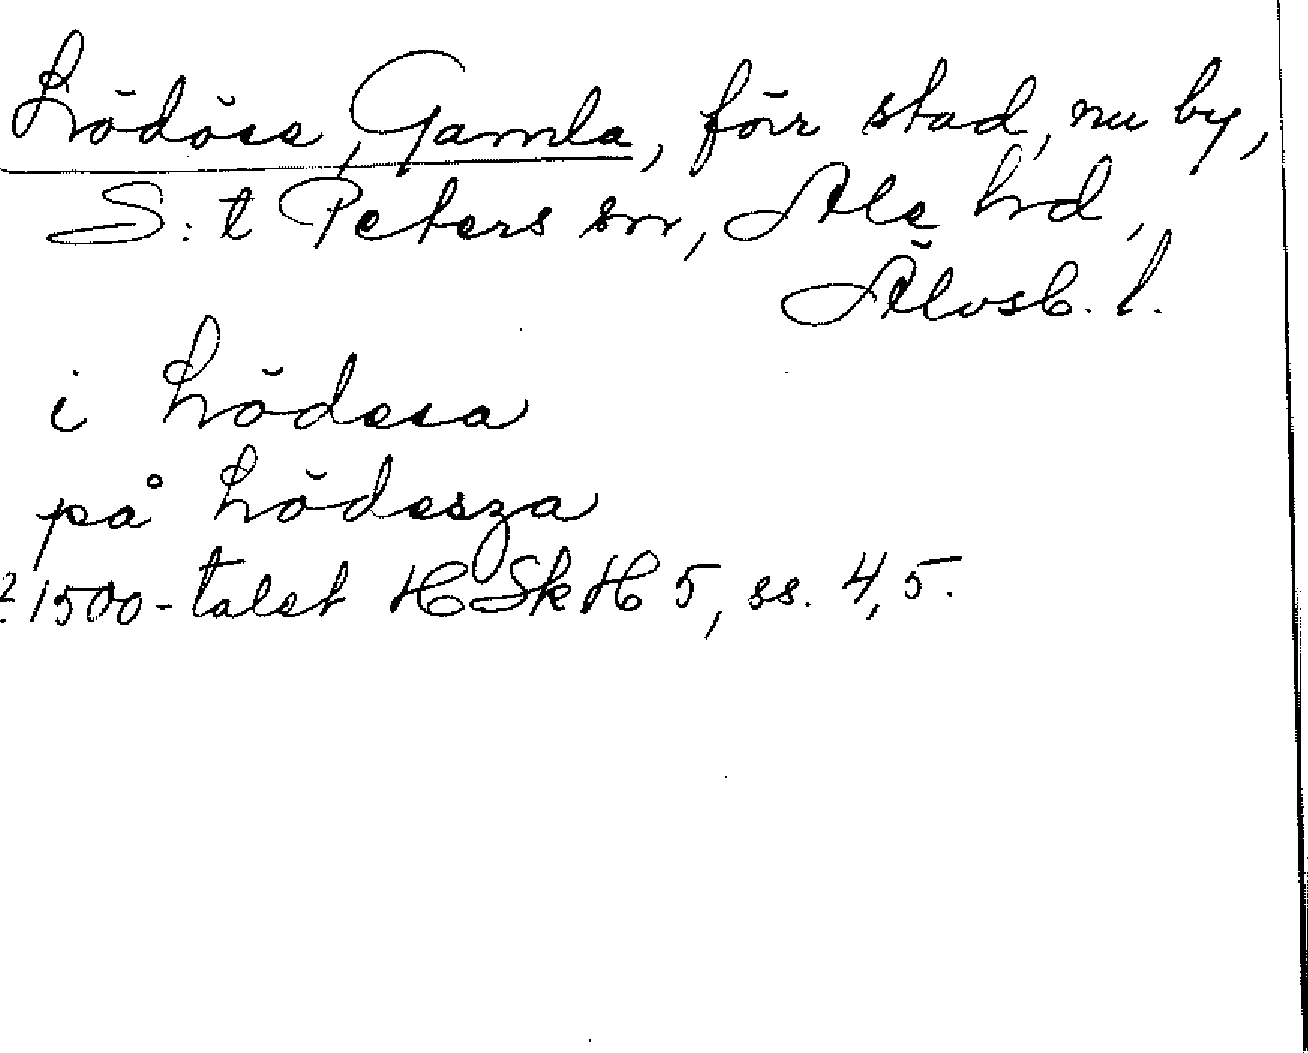 Lödöse, Gamla, förr stad, nu by,
S:t Peters sn, Ale hd,
Älvsb. l.
i Lödesa
på Lödesza
? 1500-talet HSkH 5, ss. 4, 5.